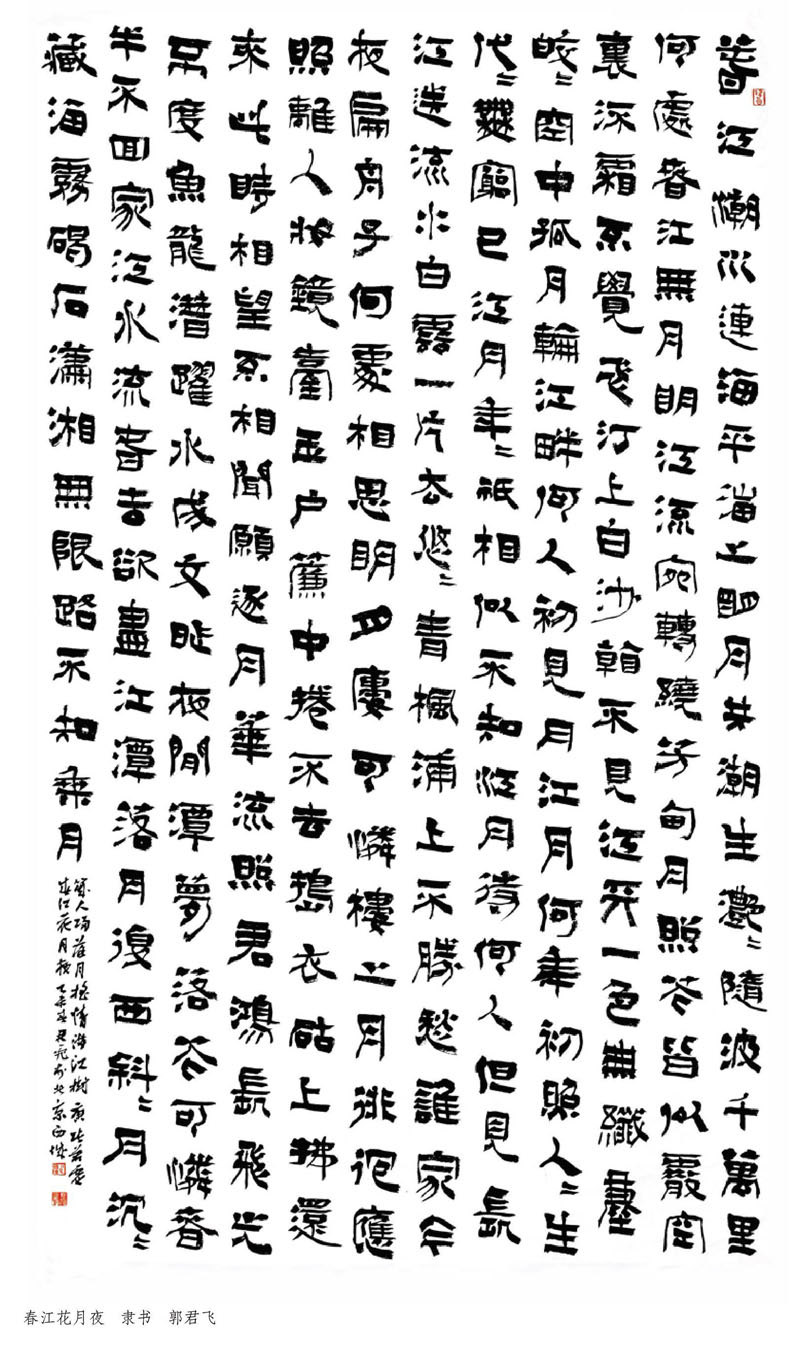 春江潮水連海平海上明月共潮生灧〻隨波千萬里
何處春江無月明江流宛轉繞芳甸月照花皆似霰空
裏流霜不覺飛汀上白沙看不見江天一色無纖塵
皎〻空中孤月輪江畔何人初見月江月何年初照人〻生
代〻無窮已江月年〻祇相似不知江月待何人但見長
江送流水白雲一片去悠〻青楓浦上不勝愁誰家今
夜扁舟子何處相思明月樓可憐樓上月徘徊應
照離人妝鏡臺玉户簾中捲不去搗衣砧上拂還
來此時相望不相聞願逐月華流照君鴻長飛光
不度魚龍潛躍水成文昨夜閒潭夢落花可憐春
半不回家江水流春去欲盡江潭落月復西斜〻月沉〻
藏海霧碣石瀟湘無限路不知乘月
幾人歸落月搖情滿江樹 唐張若虛
春江花月夜 乙未春君飛於北京西城
春江花月夜 隶书 郭君飞